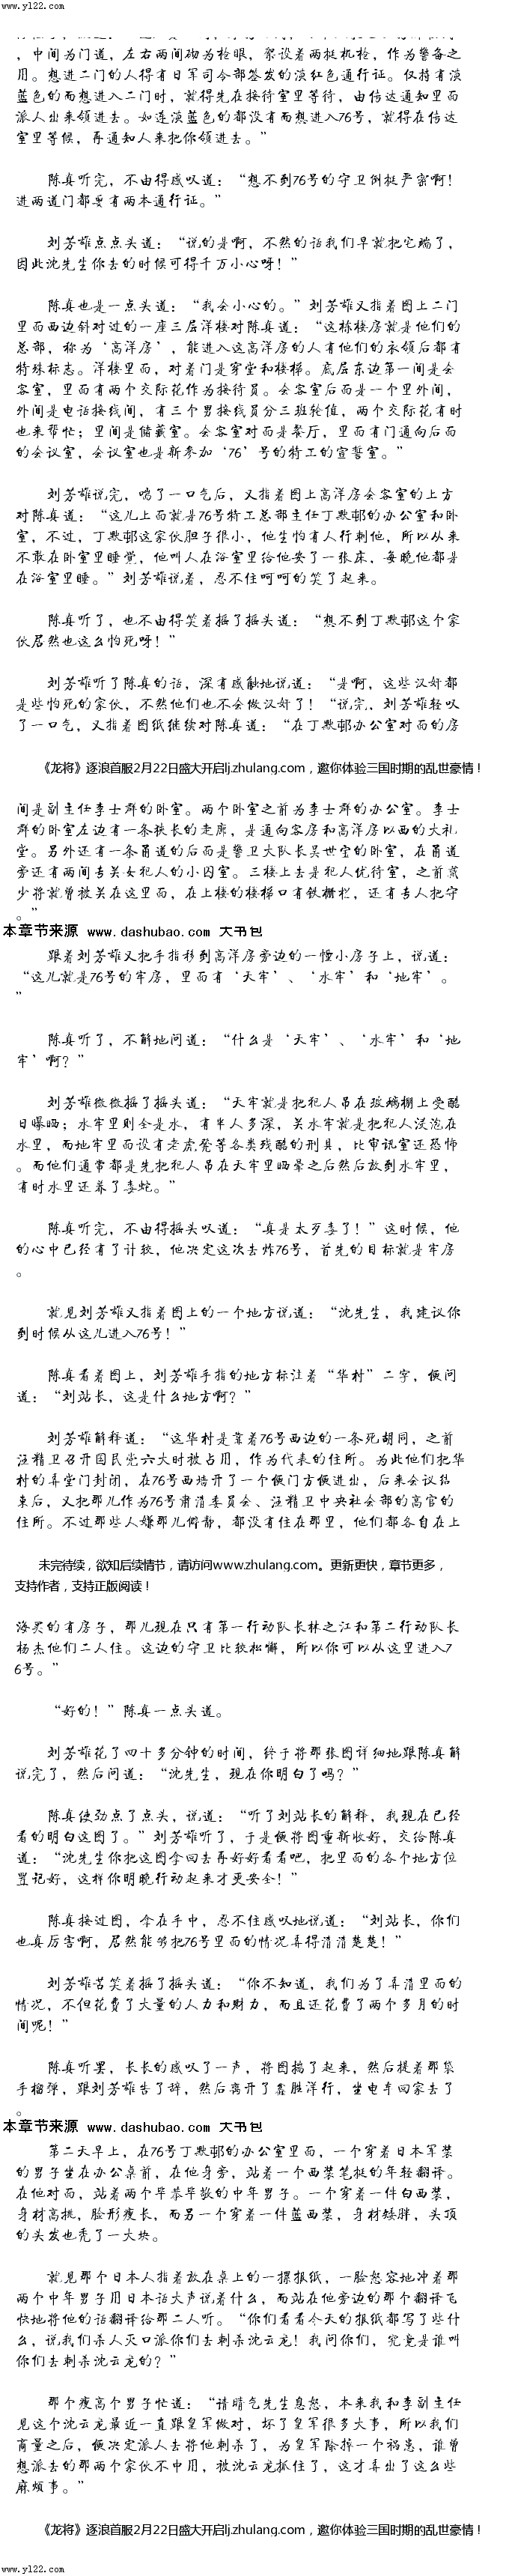 www.yl22.com
，中间为门道，左右两间砌为枪眼，架设着两挺机枪，作为警备之
用。想进二门的人得有日军司令部签发的淡红色通行证。仅持有淡
蓝色的而想进入二门时，就得先在接待室里等待，由传达通知里面
派人出来领进去。如连淡蓝色的都没有而想进入76号，就得在传达
室里等候，再通知人来把你领进去。”
陈真听完，不由得感叹道：“想不到76号的守卫倒挺严密啊！
进两道门都要有两本通行证。”
刘芳雄点点头道：“说的是啊，不然的话我们早就把它端了，
因此沈先生你去的时候可得千万小心呀！”
陈真也是一点头道：“我会小心的。”刘芳雄又指着图上二门
里面西边斜对过的一座三层洋楼对陈真道：“这栋楼房就是他们的
总部，称为‘高洋房’，能进入这高洋房的人有他们的衣领后都有
特殊标志。洋楼里面，对着门是穿堂和楼梯。底层东边第一间是会
客室，里面有两个交际花作为接待员。会客室后面是一个里外间，
外间是电话接线间，有三个男接线员分三班轮值，两个交际花有时
也来帮忙；里间是储藏室。会客室对面是餐厅，里面有门通向后面
的会议室，会议室也是新参加‘76’号的特工的宣誓室。”
刘芳雄说完，喘了一口气后，又指着图上高洋房会客室的上方
对陈真道：“这儿上面就是76号特工总部主任丁默邨的办公室和卧
室，不过，丁默邨这家伙胆子很小，他生怕有人行刺他，所以从来
不敢在卧室里睡觉，他叫人在浴室里给他安了一张床，每晚他都是
在浴室里睡。”刘芳雄说着，忍不住呵呵的笑了起来。
陈真听了，也不由得笑着摇了摇头道：“想不到丁默邨这个家
伙居然也这么怕死呀！”
刘芳雄听了陈真的话，深有感触地说道：“是啊，这些汉奸都
是些怕死的家伙，不然他们也不会做汉奸了！“说完，刘芳雄轻叹
了一口气，又指着图纸继续对陈真道：“在丁默邨办公室对面的房
《龙将》逐浪首服2月22日盛大开启lj.zhulang.com，邀你体验三国时期的乱世豪情！
间是副主任李士群的卧室。两个卧室之前为李士群的办公室。李士
群的卧室左边有一条狭长的走廊，是通向客房和高洋房以西的大礼
堂。另外还有一条甬道的后面是警卫大队长吴世宝的卧室，在甬道
旁还有两间专关女犯人的小囚室。三楼上去是犯人优待室，之前黄
少将就曾被关在这里面，在上楼的楼梯口有铁栅栏，还有专人把守
。”
本章节来源 www.dashubao.com 大书包
跟着刘芳雄又把手指移到高洋房旁边的一幢小房子上，说道：
“这儿就是76号的牢房，里面有‘天牢’、‘水牢’和‘地牢’。
”
陈真听了，不解地问道：“什么是‘天牢’、‘水牢’和‘地
牢’啊？”
刘芳雄微微摇了摇头道：“天牢就是把犯人吊在玻璃棚上受酷
日曝晒；水牢里则全是水，有半人多深，关水牢就是把犯人浸泡在
水里，而地牢里面设有老虎凳等各类残酷的刑具，比审讯室还恐怖
。而他们通常都是先把犯人吊在天牢里晒晕之后然后放到水牢里，
有时水里还养了毒蛇。”
陈真听完，不由得摇头叹道：“真是太歹毒了！”这时候，他
的心中已经有了计较，他决定这次去炸76号，首先的目标就是牢房
。
就见刘芳雄又指着图上的一个地方说道：“沈先生，我建议你
到时候从这儿进入76号！”
陈真看着图上，刘芳雄手指的地方标注着“华村”二字，便问
道：“刘站长，这是什么地方啊？”
刘芳雄解释道：“这华村是靠着76号西边的一条死胡同，之前
汪精卫召开国民党六大时被占用，作为代表的住所。为此他们把华
村的弄堂门封闭，在76号西墙开了一个便门方便进出，后来会议结
束后，又把那儿作为76号肃清委员会、汪精卫中央社会部的高官的
住所。不过那些人嫌那儿僻静，都没有住在那里，他们都各自在上
未完待续，欲知后续情节，请访问www.zhulang.com。更新更快，章节更多，
支持作者，支持正版阅读！
海买的有房子，那儿现在只有第一行动队长林之江和第二行动队长
杨杰他们二人住。这边的守卫比较松懈，所以你可以从这里进入7
6号。”
“好的！”陈真一点头道。
刘芳雄花了四十多分钟的时间，终于将那张图详细地跟陈真解
说完了，然后问道：“沈先生，现在你明白了吗？”
陈真使劲点了点头，说道：“听了刘站长的解释，我现在已经
看的明白这图了。”刘芳雄听了，于是便将图重新收好，交给陈真
道：“沈先生你把这图拿回去再好好看看吧，把里面的各个地方位
置记好，这样你明晚行动起来才更安全！”
陈真接过图，拿在手中，忍不住感叹地说道：“刘站长，你们
也真厉害啊，居然能够把76号里面的情况弄得清清楚楚！”
刘芳雄苦笑着摇了摇头道：“你不知道，我们为了弄清里面的
情况，不但花费了大量的人力和财力，而且还花费了两个多月的时
间呢！”
陈真听罢，长长的感叹了一声，将图揣了起来，然后提着那袋
手榴弹，跟刘芳雄告了辞，然后离开了鑫胜洋行，坐电车回家去了
。
本章节来源 www.dashubao.com 大书包
第二天早上，在76号丁默邨的办公室里面，一个穿着日本军装
的男子坐在办公桌前，在他身旁，站着一个西装笔挺的年轻翻译。
在他对面，站着两个毕恭毕敬的中年男子。一个穿着一件白西装，
身材高挑，脸形瘦长，而另一个穿着一件蓝西装，身材矮胖，头顶
的头发也秃了一大块。
就见那个日本人指着放在桌上的一摞报纸，一脸怒容地冲着那
两个中年男子用日本话大声说着什么，而站在他旁边的那个翻译飞
快地将他的话翻译给那二人听。“你们看看今天的报纸都写了些什
么，说我们杀人灭口派你们去刺杀沈云龙！我问你们，究竟是谁叫
你们去刺杀沈云龙的？”
那个瘦高个男子忙道：“请晴气先生息怒，本来我和李副主任
见这个沈云龙最近一直跟皇军做对，坏了皇军很多大事，所以我们
商量之后，便决定派人去将他刺杀了，为皇军除掉一个祸患，谁曾
想派去的那两个家伙不中用，被沈云龙抓住了，这才弄出了这么些
麻烦事。”
《龙将》逐浪首服2月22日盛大开启lj.zhulang.com，邀你体验三国时期的乱世豪情！
www.yl22.com